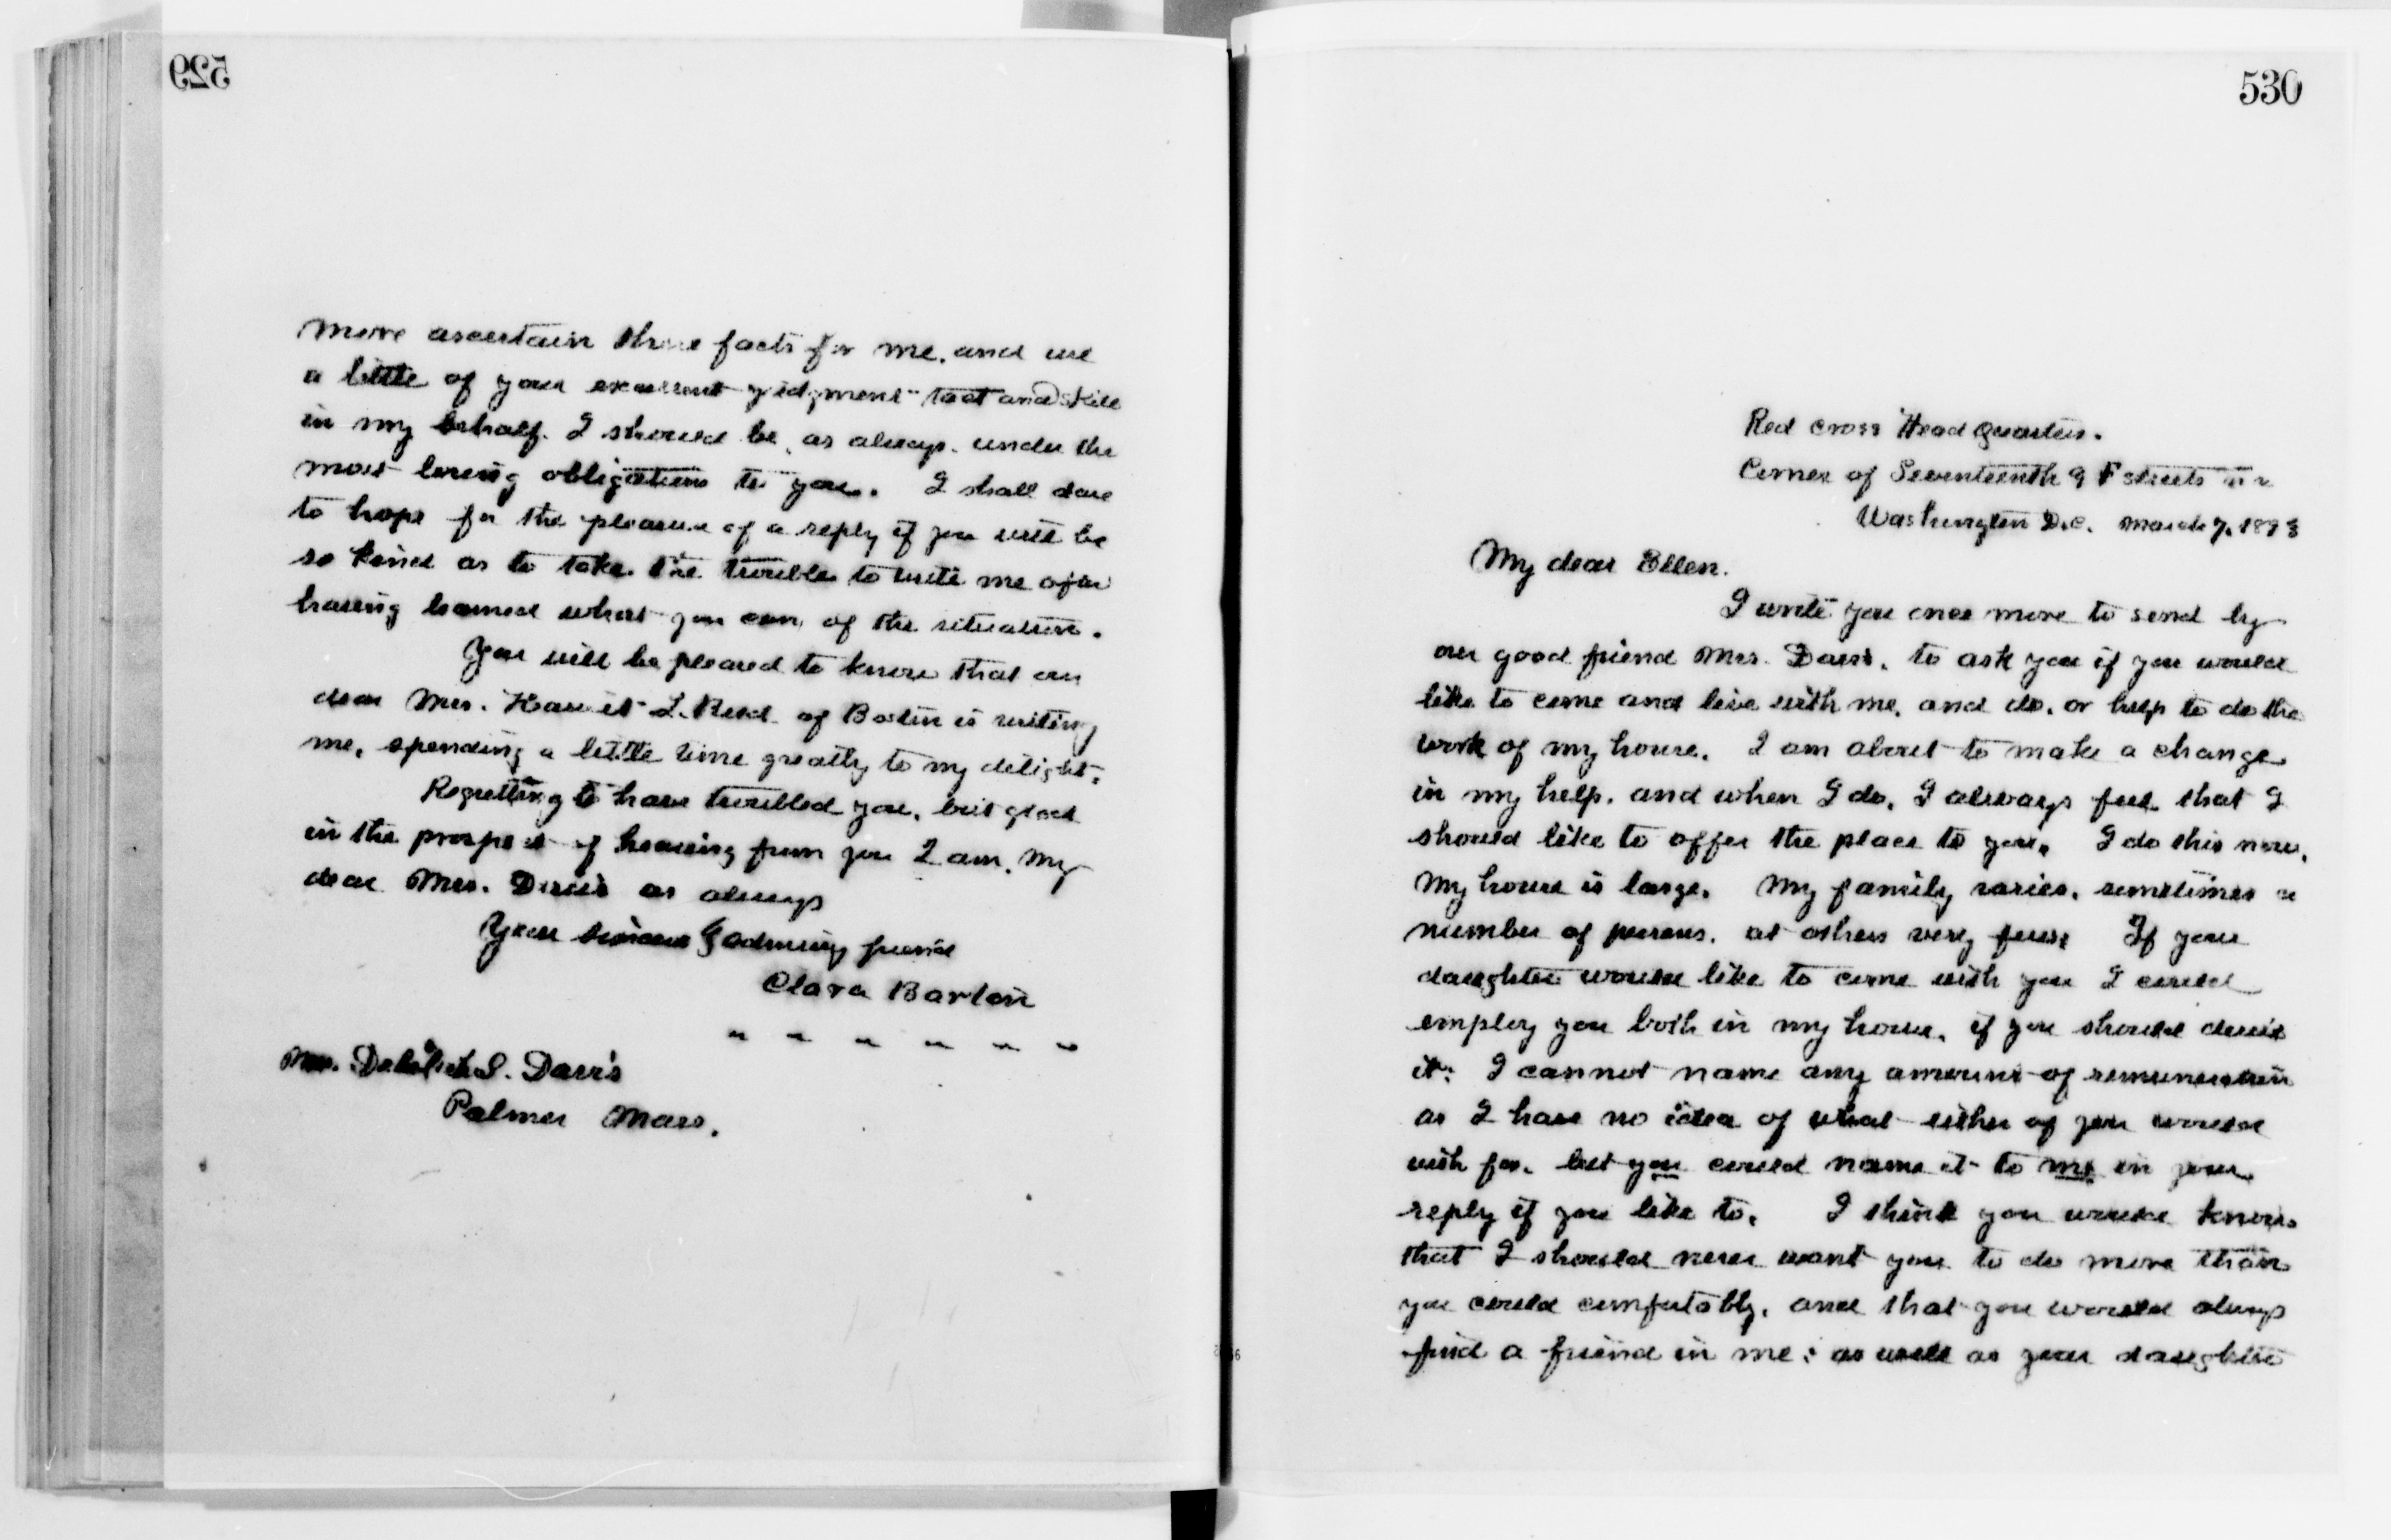 529
more ascertain these facts for me, and use
a little of your excellent judgment tact and skill
in my behalf. I should be, as always, under the
most loving obligations to you. I shall dare
to hope for the pleasure of a reply if you will be
so kind as to take the trouble to write me after
having learned what you can of the situation.
You will be pleased to know that our
dear Mrs. Harriet L. Reed of Boston is visiting
me, spending a little time greatly to my delight.
Regretting to have troubled you, but glad
in the prospect of hearing from you I am, my
dear Mrs. Davis as always
Your sincere & admiring friend
Clara Barton
Mrs. S. Davis
Palmer Mass.
530
Red Cross Head Quarters.
Corner of Seventeenth & F streets
Washington D.C. March 7, 1893
My dear Ellen.
I write you once more to send by
our good friend Mrs. Davis, to ask you if you would
like to come and live with me, and do, or help to do the
work of my house. I am about to make a change
in my help, and when I do, I always feel that I
should like to offer the place to you. I do this now.
My house is large. My family varies, sometimes a
number of persons, at others very few. If your
daughter would like to come with you I could
employ you both in my house, if you should desire
it. I cannot name any amount of remuneration
as I have no idea of what either of you would
wish for, but you could name it to me in your
reply if you like to. I think you would know
that I should never want you to do more than
you could comfortably, and that you would always
find a friend in me; as well as your daughter